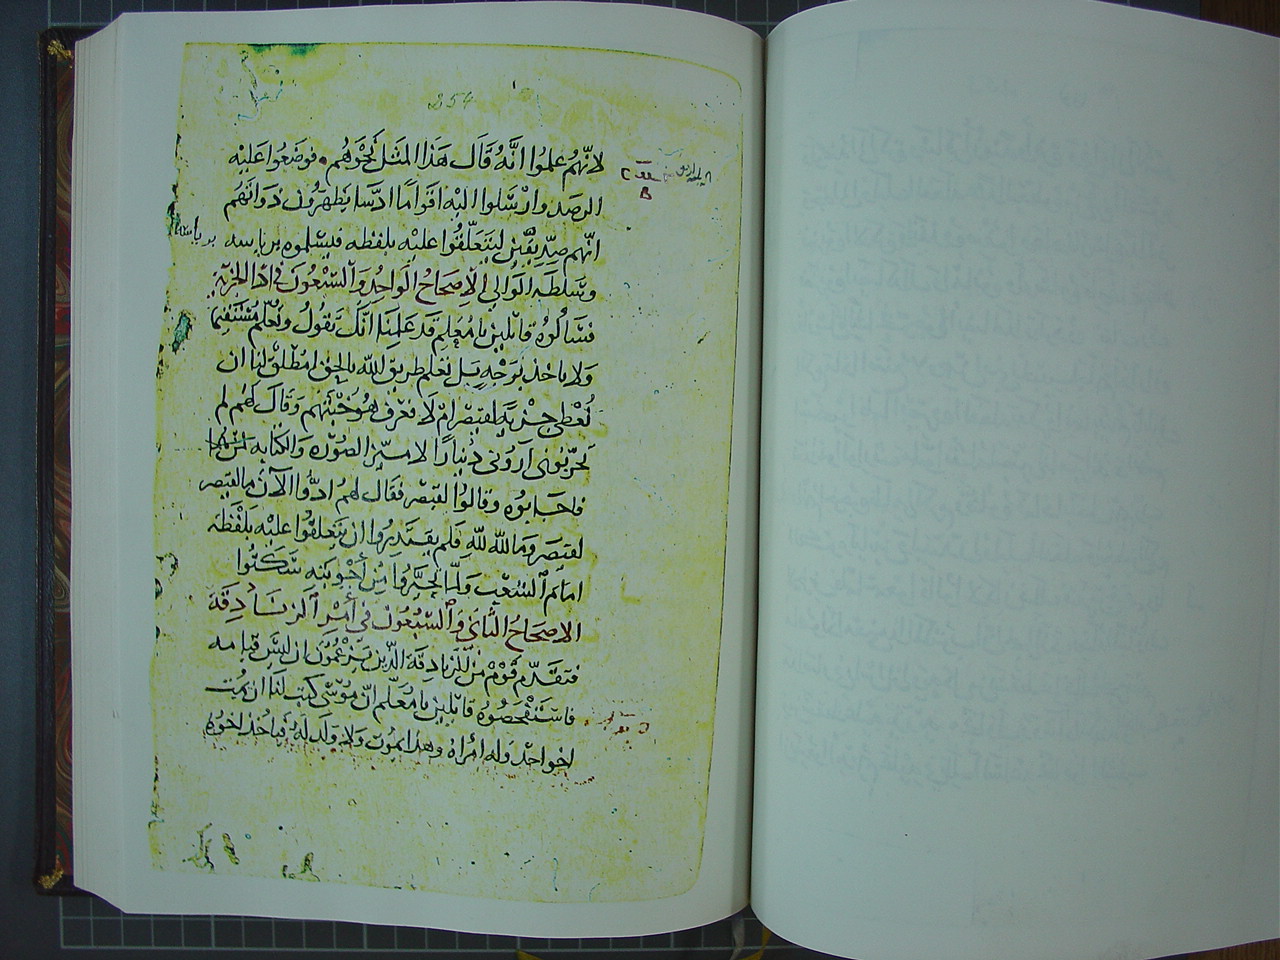 254
لانّهم علموا انَّهُ قَالَ هَذَا المثل نَحْوَهُم • فوضَعُوا عَليْه
الرصد وارْسَلوا اليْه اقوامًا ادّسَا يُظهرُون ذَوَاتَهُم
انّهم صدّيقين ليَتَعَلَّقُوا عليْه بلفظه فيسْلموه برياسه
وسَلطَة الوَالي الْاِصْحَاحُ الوَاحِدُ وَالسَّبْعُونَ في اذا الجزيَة
فسَالُوهُ قائلين يا مُعَلم قد عَلمنَا انّكَ تقُولُ وتُعلّم مُسْتَقيما
ولا ياخذ بوَجْهٍ بَل تعلم طريق اللّه بالحق امُطلقٌ لنا ان
نُعْطي جزيَةً لقيصَر امْ لَا فعَرف هُوَ خبْثَهُم وَقَالَ لهُم لم
تجرّبُوني ارَوُني دينَارًا لامَن الصُوْرَه والكتابه
فاجابوُه وقالوُا لقيصَر فقال لهمُ ادُّوا الآن ما لقيصر
لقيصَر وَمَا للّه للّهِ فَلم يقدِرُوا ان يَتَعَلقُوا عليْه بلَفْظَه
امَام الشعْب وَلمّا تحيَّرُوا مِنْ أجْوبَته سَكَتُوا
الاصْحَاحُ الثَّاني وَالسَّبْعُون في أَمْرِ الزنَادِقَة
فتقَدَّم قَوْمٌ منَ الزنادقَة الَّذين يَزعُمُونَ ان ليسَ قيامه
فاسْتَفْحَصُوهُ قائلين يا مُعَلّم انّ مُوسَى كتبَ لنَا ان يمُت
اخو احَدٍ وَله امْرَاة وهَذا يموُت وَلا وَلَد لَهُ فيَاخُذ اخُوه